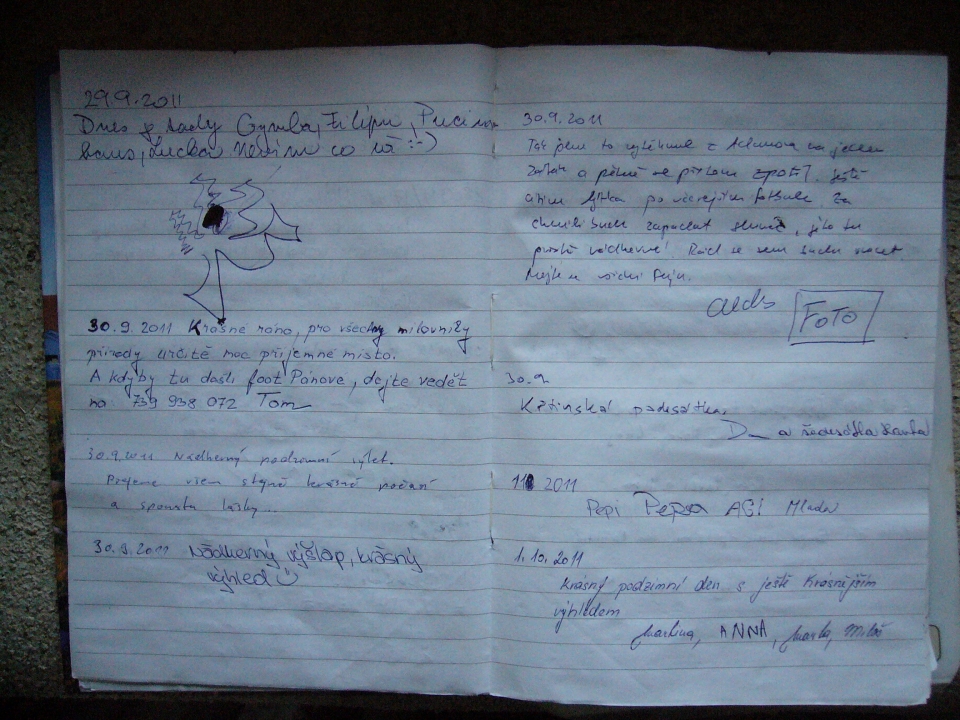 29.9.2011
Dnes tady Gymba, Filípu,
Lucka nevím co víš :-)
30.9.2011 Krásné ráno, pro všechny milovníky
přírody určitě moc příjemné místo.
A kdyby tu došli foot Pánové, dejte vedět
na 739 938 072 Tom
30.9.2011 Nádherný podzimní výlet.
Přejeme všem stejně krásné počasí
a spoustu lásky...
30.9.2011 Nádherný výšlap, krásný
výhled
30.9.2011
Tak jsem to z Adamova na jeden
a pěkně se přitom zpotil. Ještě
cítím lýtka po včerejším fotbale. Za
chvíli bude zapadat slunce, je to tu
prostě nádherné! Rád se sem budu vracet.
FOTO
30.9.
Křtinská padesátka,
a
2011
Pepi Pepsa AGI Mlada
1.10.2011
Krásný podzimní den s ještě krásnějším
výhledem
Martina, ANNA, Miloš